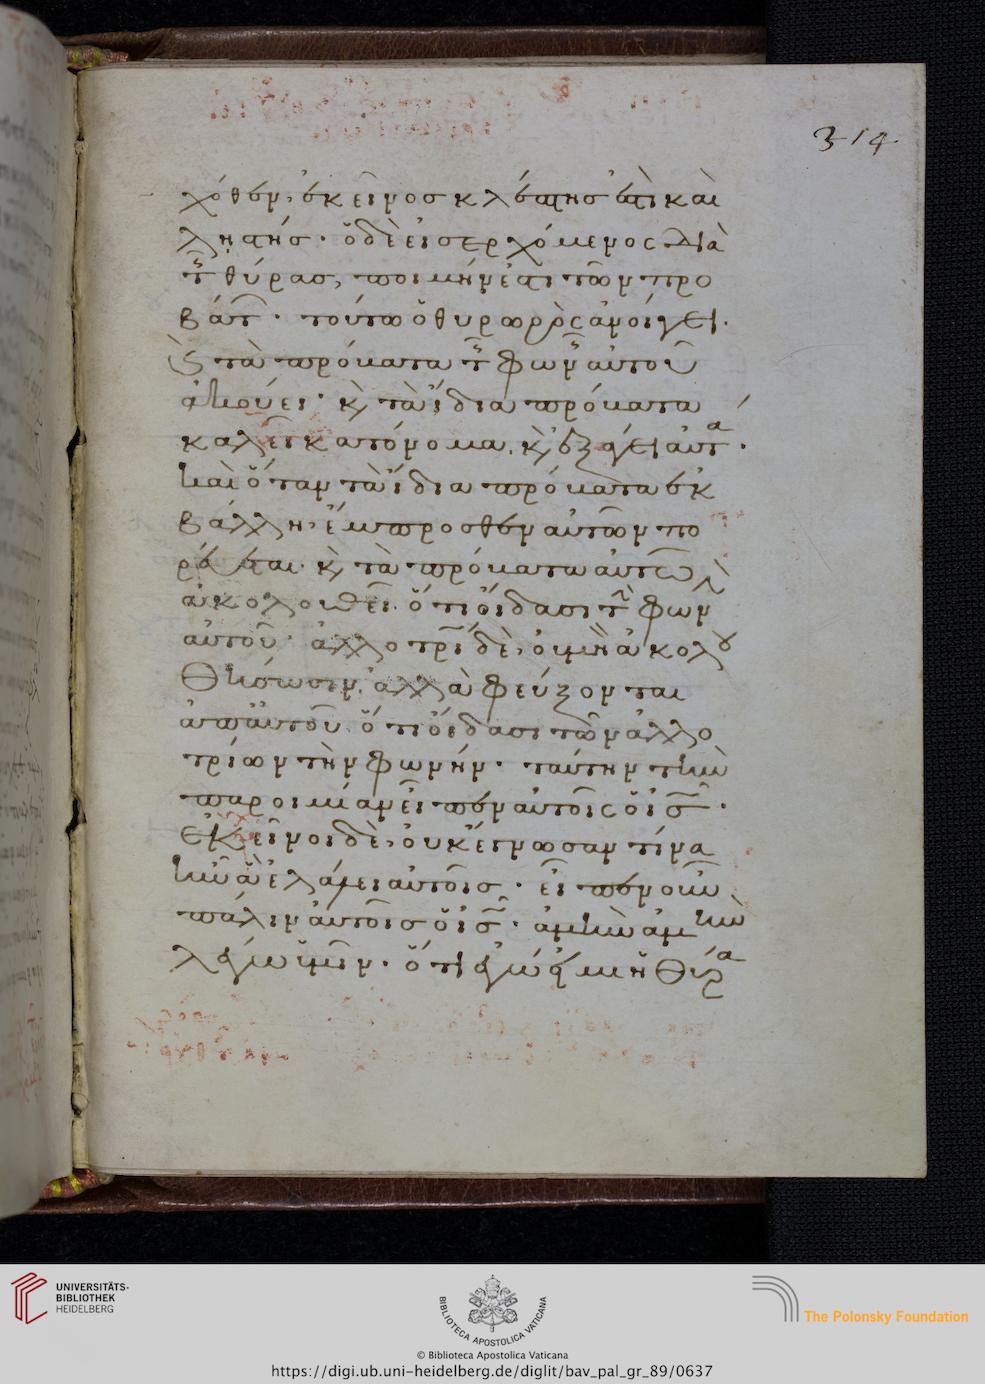 314
χόθεν, ἐκεῖνος κλέπτης ἐστὶ καὶ
ληστής· ὁ δὲ εἰσερχόμενος διὰ
τ̂ θύρας, ποιμήν ἐστι τῶν προ
βάτ· τούτω ὁ θυρωρὸς ἀνοίγει·
κ̀ τὰ πρόβατα τ̂ φων̂ αὐτοῦ
ἀκούει· κ̀ τὰ ἴδια πρόβατα
καλεῖ κατόνομα, κ̀ ἐξάγει αὐτα·
καὶ ὅταν τὰ ἴδια πρόβατα ἐκ
βάλλη, ἔμπροσθεν αὐτῶν πο
ρεύεται· κ̀ τὰ πρόβατα αὐτῶ
ἀκολουθεῖ· ὅτι οἴδασι τ̂ φων
αὐτοῦ· ἀλλοτρί δὲ, οὐ μὴ ἀκολου
θήσωσιν, ἀλλὰ φεύξονται
ἀπ' αὐτοῦ· ὅτι οἴδασι τῶν ἀλλο
τρίων τὴν φωνήν· ταύτην τὴν
παροιμίαν εἶπεν αὐτοῖς ὁ ις̅·
ἐκεῖνοι δὲ, οὐκ ἔγνωσαν τίνα
ἦν ἃ ἐλάλει αὐτοῖς· εἶπεν οὖν
πάλιν αὐτοῖς ὁ ις̅· ἀμὴν ἀμὴν
λέγω ὑμῖν· ὅτι ἐγώ εἰμι ἡ θύρα
UNIVERSITÄTS-
BIBLIOTHEK
HEIDELBERG
BIBLIOTECA APOSTOLICA VATICANA
The Polonsky Foundation
© Biblioteca Apostolica Vaticana
https://digi.ub.uni-heidelberg.de/diglit/bav_pal_gr_89/0637